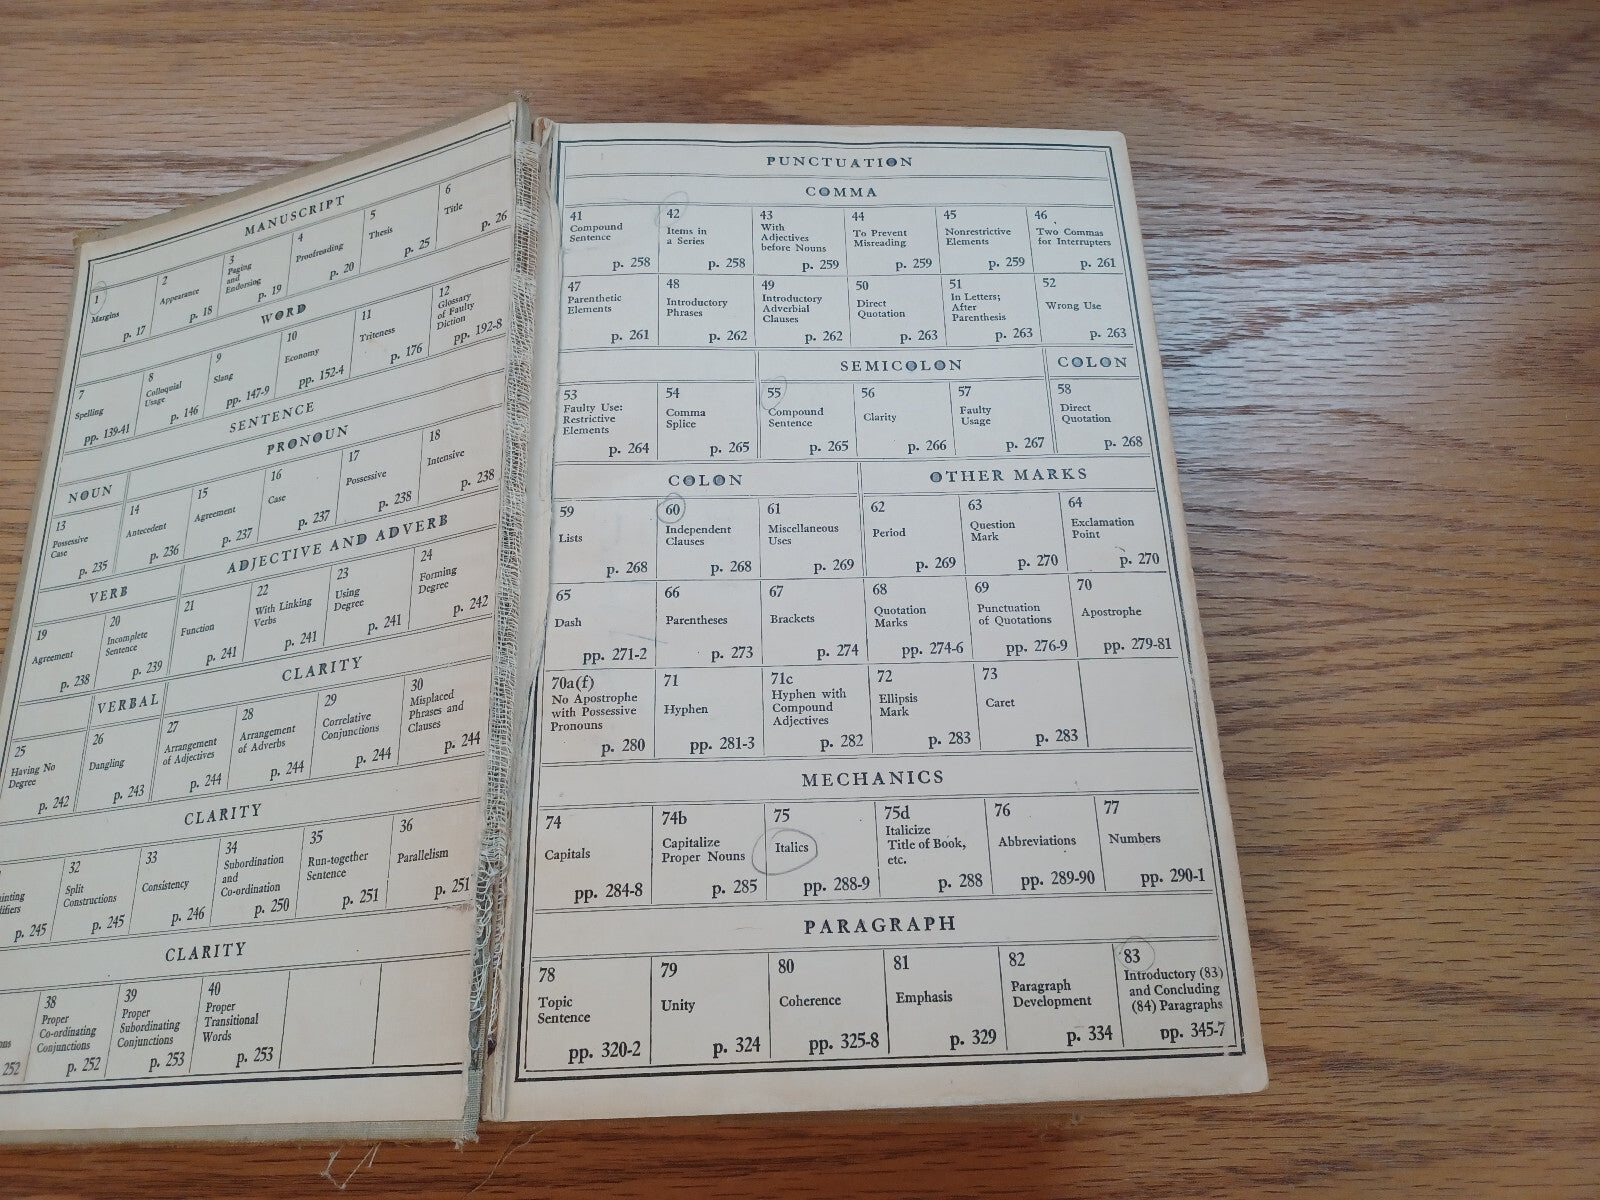 MANUSCRIPT
1
Margins
p. 17
2
Appearance
p. 18
3
Paging
and
Endorsing
p. 19
4
Proofreading
p. 20
5
Thesis
p. 25
6
Title
p. 26
WORD
7
Spelling
pp. 139-41
8
Colloquial
Usage
p. 146
9
Slang
pp. 147-9
10
Economy
pp. 152-4
11
Triteness
p. 176
12
Glossary
of Faulty
Diction
pp. 192-8
SENTENCE
NOUN
PRONOUN
13
Possessive
Case
p. 235
14
Antecedent
p. 236
15
Agreement
p. 237
16
Case
p. 237
17
Possessive
p. 238
18
Intensive
p. 238
VERB
ADJECTIVE AND ADVERB
19
Agreement
p. 238
20
Incomplete
Sentence
p. 239
21
Function
p. 241
22
With Linking
Verbs
p. 241
23
Using
Degree
p. 241
24
Forming
Degree
p. 242
VERBAL
CLARITY
25
Having No
Degree
p. 242
26
Dangling
p. 243
27
Arrangement
of Adjectives
p. 244
28
Arrangement
of Adverbs
p. 244
29
Correlative
Conjunctions
p. 244
30
Misplaced
Phrases and
Clauses
p. 244
CLARITY
p. 245
32
Split
Constructions
p. 245
33
Consistency
p. 246
34
Subordination
and
Co-ordination
p. 250
35
Run-together
Sentence
p. 251
36
Parallelism
p. 251
CLARITY
252
38
Proper
Co-ordinating
Conjunctions
p. 252
39
Proper
Subordinating
Conjunctions
p. 253
40
Proper
Transitional
Words
p. 253
PUNCTUATION
COMMA
41
Compound
Sentence
p. 258
42
Items in
a Series
p. 258
43
With
Adjectives
before Nouns
p. 259
44
To Prevent
Misreading
p. 259
45
Nonrestrictive
Elements
p. 259
46
Two Commas
for Interrupters
p. 261
47
Parenthetic
Elements
p. 261
48
Introductory
Phrases
p. 262
49
Introductory
Adverbial
Clauses
p. 262
50
Direct
Quotation
p. 263
51
In Letters;
After
Parenthesis
p. 263
52
Wrong Use
p. 263
SEMICOLON
COLON
53
Faulty Use:
Restrictive
Elements
p. 264
54
Comma
Splice
p. 265
55
Compound
Sentence
p. 265
56
Clarity
p. 266
57
Faulty
Usage
p. 267
58
Direct
Quotation
p. 268
COLON
OTHER MARKS
59
Lists
p. 268
60
Independent
Clauses
p. 268
61
Miscellaneous
Uses
p. 269
62
Period
p. 269
63
Question
Mark
p. 270
64
Exclamation
Point
p. 270
65
Dash
pp. 271-2
66
Parentheses
p. 273
67
Brackets
p. 274
68
Quotation
Marks
pp. 274-6
69
Punctuation
of Quotations
pp. 276-9
70
Apostrophe
pp. 279-81
70a(f)
No Apostrophe
with Possessive
Pronouns
p. 280
71
Hyphen
pp. 281-3
71c
Hyphen with
Compound
Adjectives
p. 282
72
Ellipsis
Mark
p. 283
73
Caret
p. 283
MECHANICS
74
Capitals
pp. 284-8
74b
Capitalize
Proper Nouns
p. 285
75
Italics
pp. 288-9
75d
Italicize
Title of Book,
etc.
p. 288
76
Abbreviations
pp. 289-90
77
Numbers
pp. 290-1
PARAGRAPH
78
Topic
Sentence
pp. 320-2
79
Unity
p. 324
80
Coherence
pp. 325-8
81
Emphasis
p. 329
82
Paragraph
Development
p. 334
83
Introductory (83)
and Concluding
(84) Paragraphs
pp. 345-7